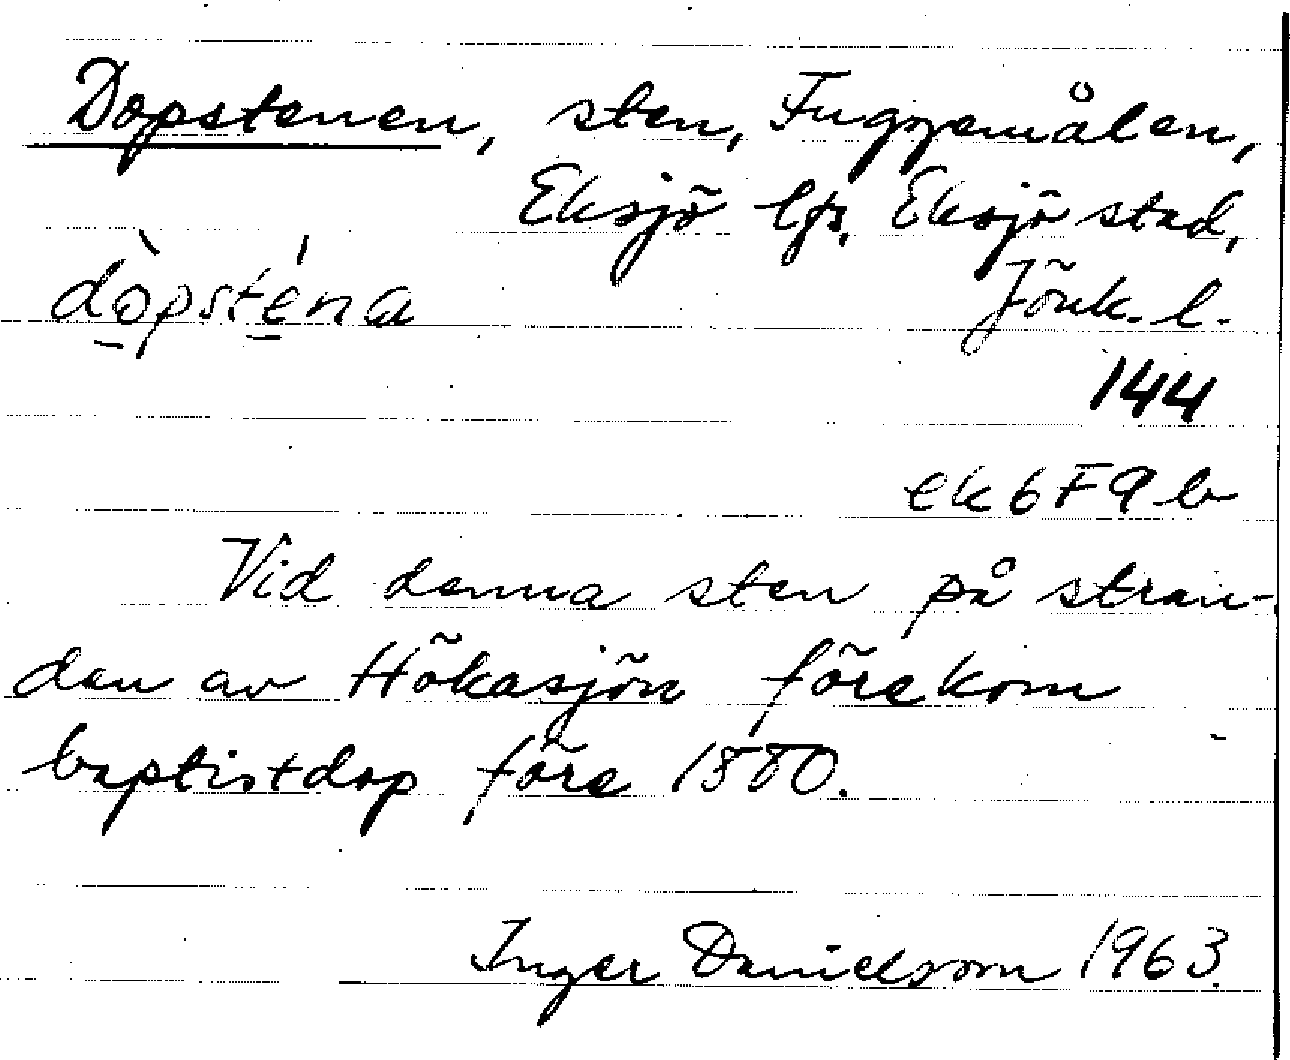 Dopstenen, sten, Fuggemålen,
Eksjö lfs, Eksjö stad,
dò̠psté̠na Jönk. l.
144
ek 6F9b
Vid denna sten på stran-
dan av Hökasjön förekom
baptistdop före 1880.
Inger Danielsson 1963.